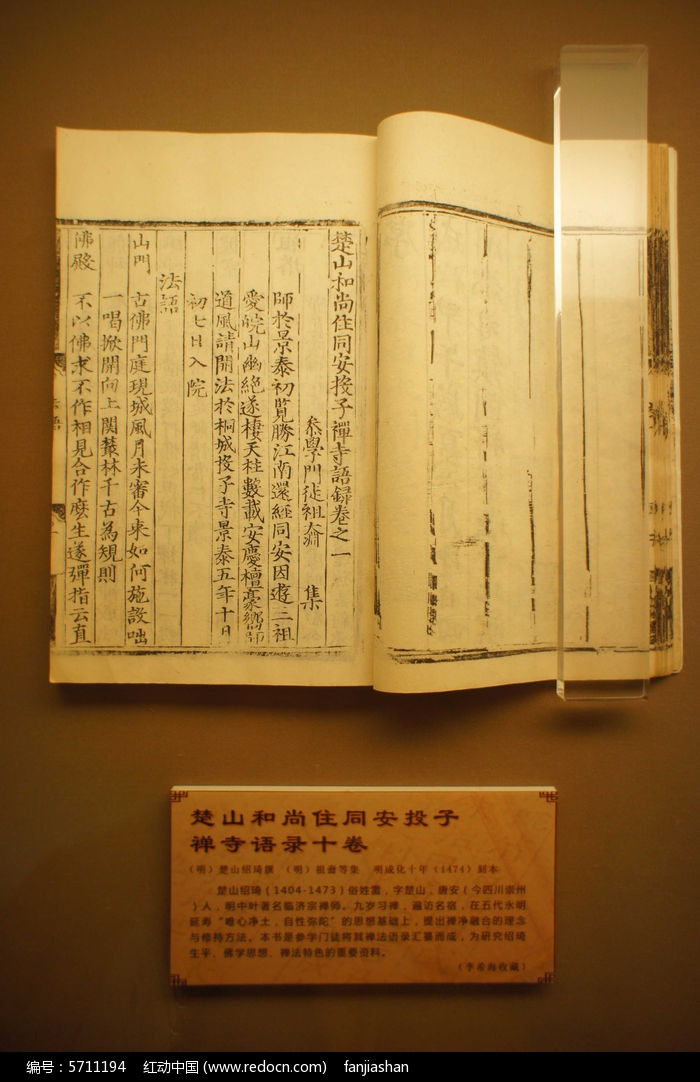 楚山和尚住同安投子禪寺語録卷之一
叅學門徒祖裔 集
師於景泰初覧勝江南還經同安因遊三祖
愛皖山幽絕遂棲天柱數載安慶檀豪嚮師
道風請開法於桐城投子寺景泰五年十月
初七日入院
法語
山門 古佛門庭現城風月未審今來如何施設咄
一喝掀開向上関叢林千古為規則
佛殿 不以佛求不作相見合作麽生遂彈指云直
楚山和尚住同安投子
禅寺语录十卷
（明）楚山绍琦撰 （明）祖裔等集 明成化十年（1474）刻本
楚山绍琦（1404-1473）俗姓雷，字楚山，唐安（今四川崇州
）人，明中叶著名临济宗禅师。九岁习禅，遍访名宿，在五代永明
延寿“唯心净土，自性弥陀”的思想基础上，提出禅净融合的理念
与修持方法。本书是参学门徒将其禅法语录汇纂而成，为研究绍琦
生平、佛学思想、禅法特色的重要资料。
（李希海收藏）
编号：5711194 红动中国 (www.redocn.com) fanjiashan